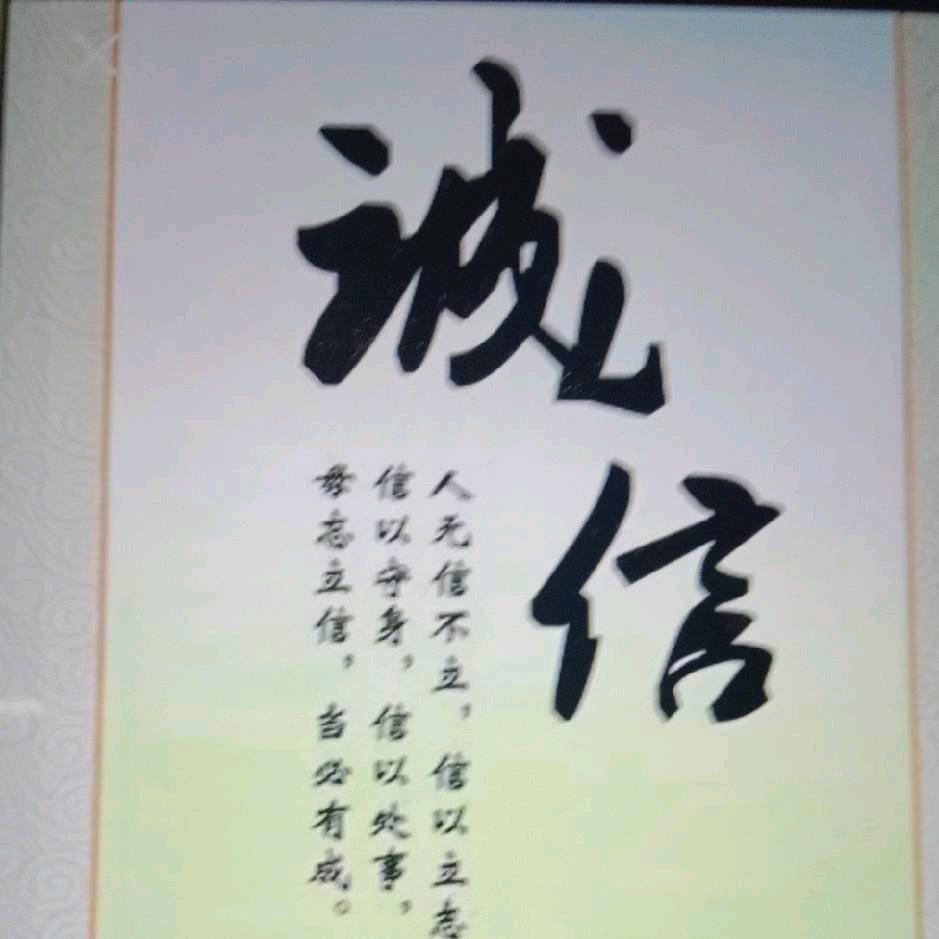 诚
信
人无信不立，信以立志
信以守身，信以处事，
毋忘立信，当必有成。